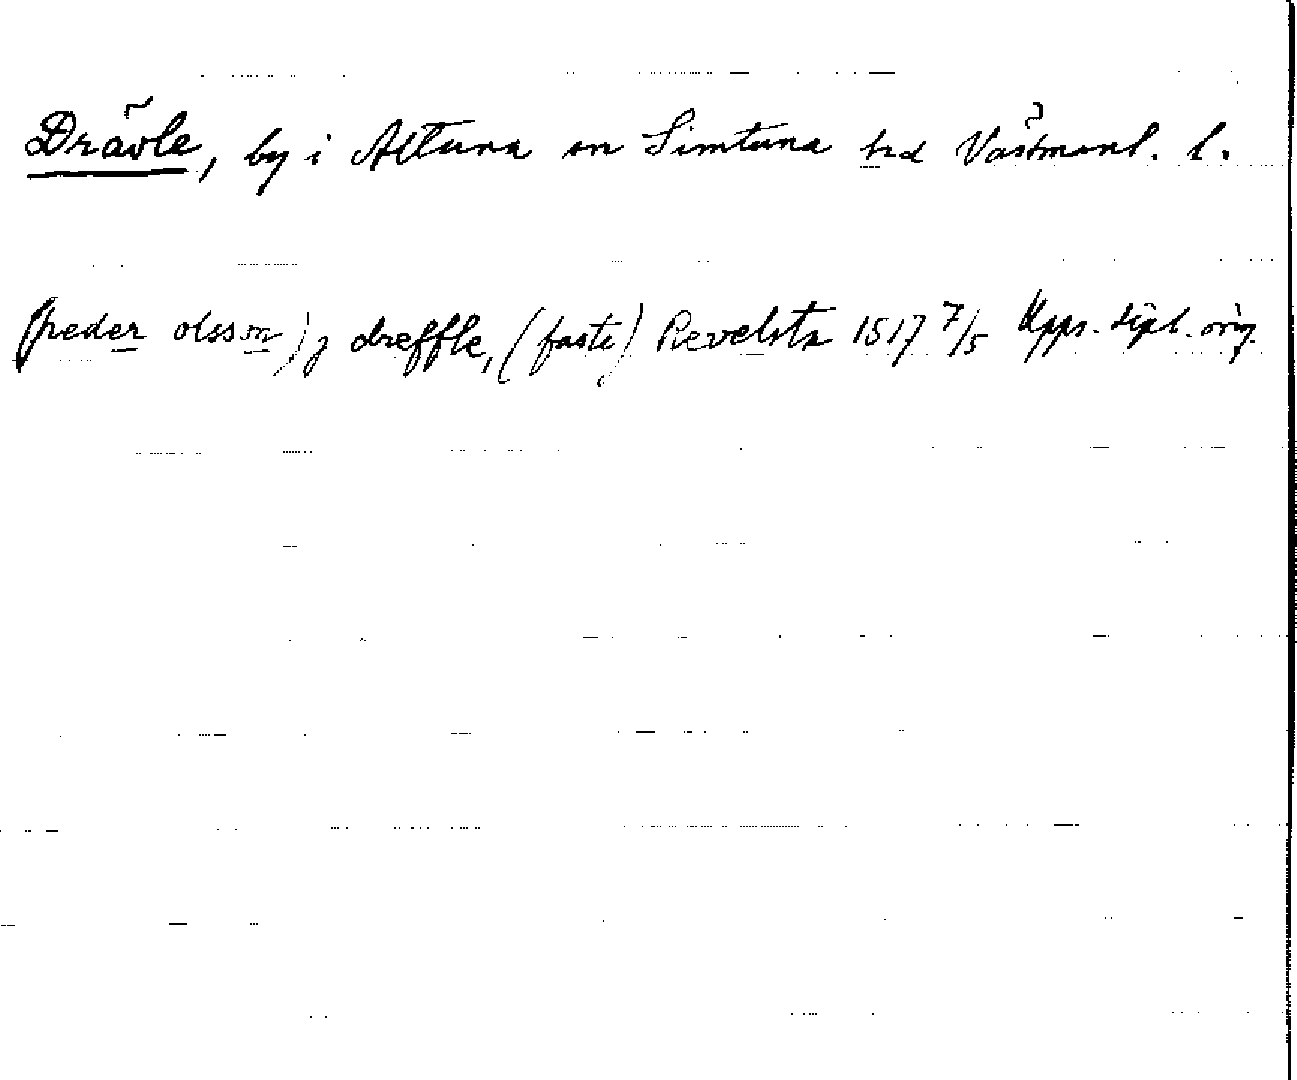 Drävle, by i Altuna sn Simtuna hrd Västmanl. l.
(peder olsson) j dreffle, (faste) Revelsta 1517 7/5 Upps. dipl. orig.